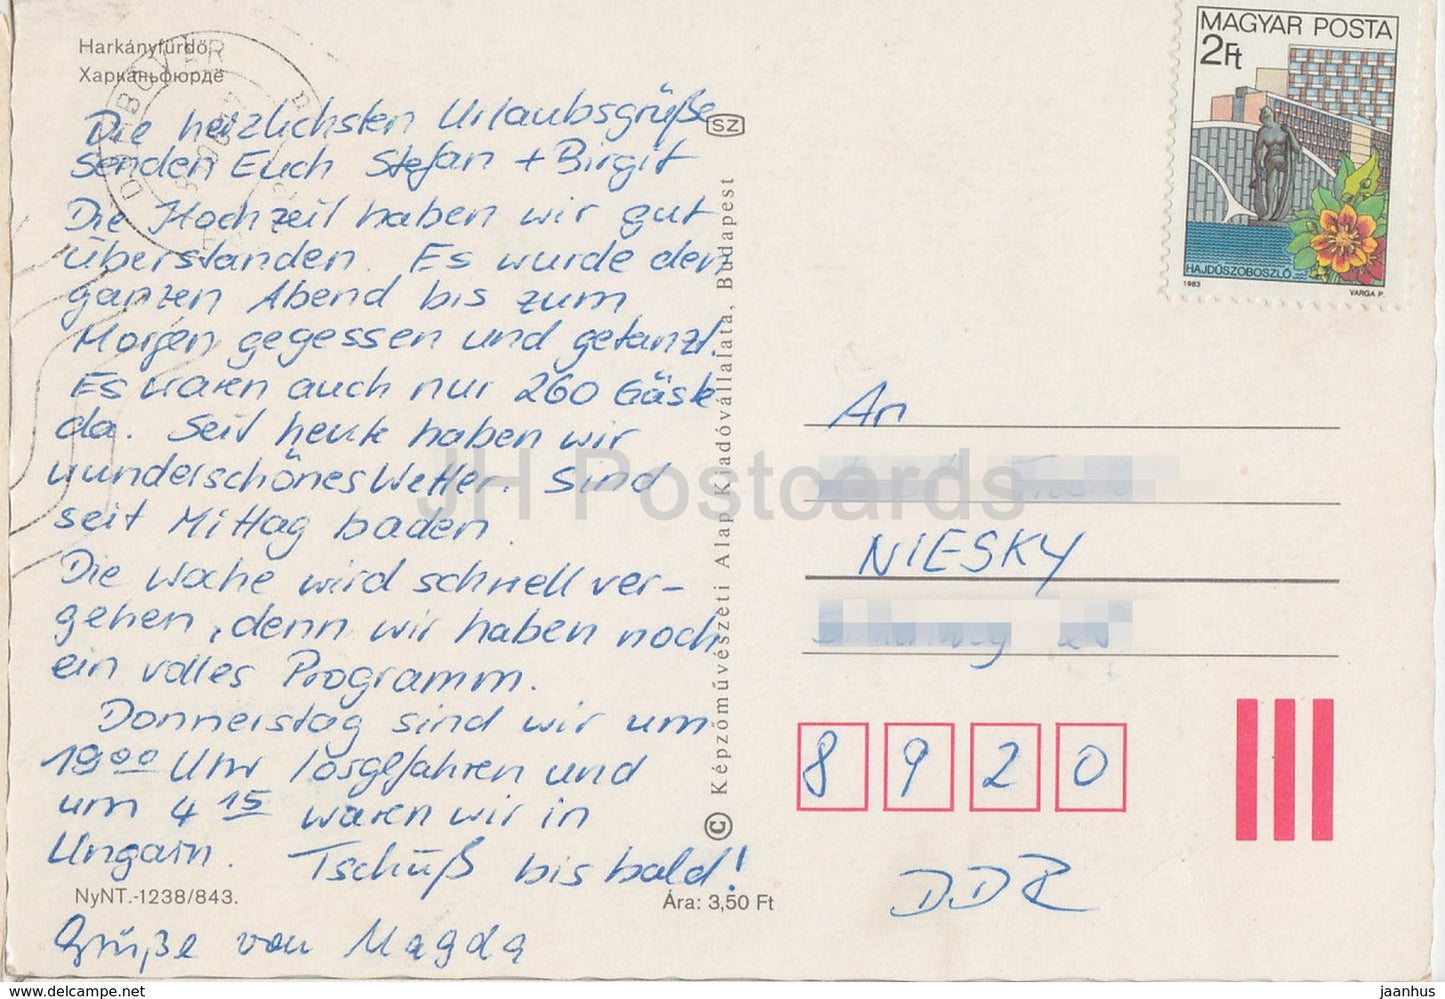 Harkányfürdő
Харканьфюрдё
Die herzlichsten Urlaubsgrüße
senden Euch Stefan + Birgit
Die Hochzeit haben wir gut
überstanden. Es wurde den
ganzen Abend bis zum
Morgen gegessen und getanzt.
Es waren auch nur 260 Gäste
da. Seit heute haben wir
wunderschönes Wetter. Sind
seit Mittag baden.
Die Woche wird schnell ver-
gehen, denn wir haben noch
ein volles Programm.
Donnerstag sind wir um
19⁰⁰ Uhr losgefahren und
um 4 15 waren wir in
Ungarn. Tschüß bis bald!
NyNT.-1238/843.
Ára: 3,50 Ft
Grüße von Magda
SZ
© Képzőművészeti Alap Kiadóvállalata, Budapest
MAGYAR POSTA
2Ft
HAJDÚSZOBOSZLÓ
1983
VARGA P.
An
NIESKY
8 9 2 0
DDR
JH Postcards
jaanhus-ee.delcampe.net